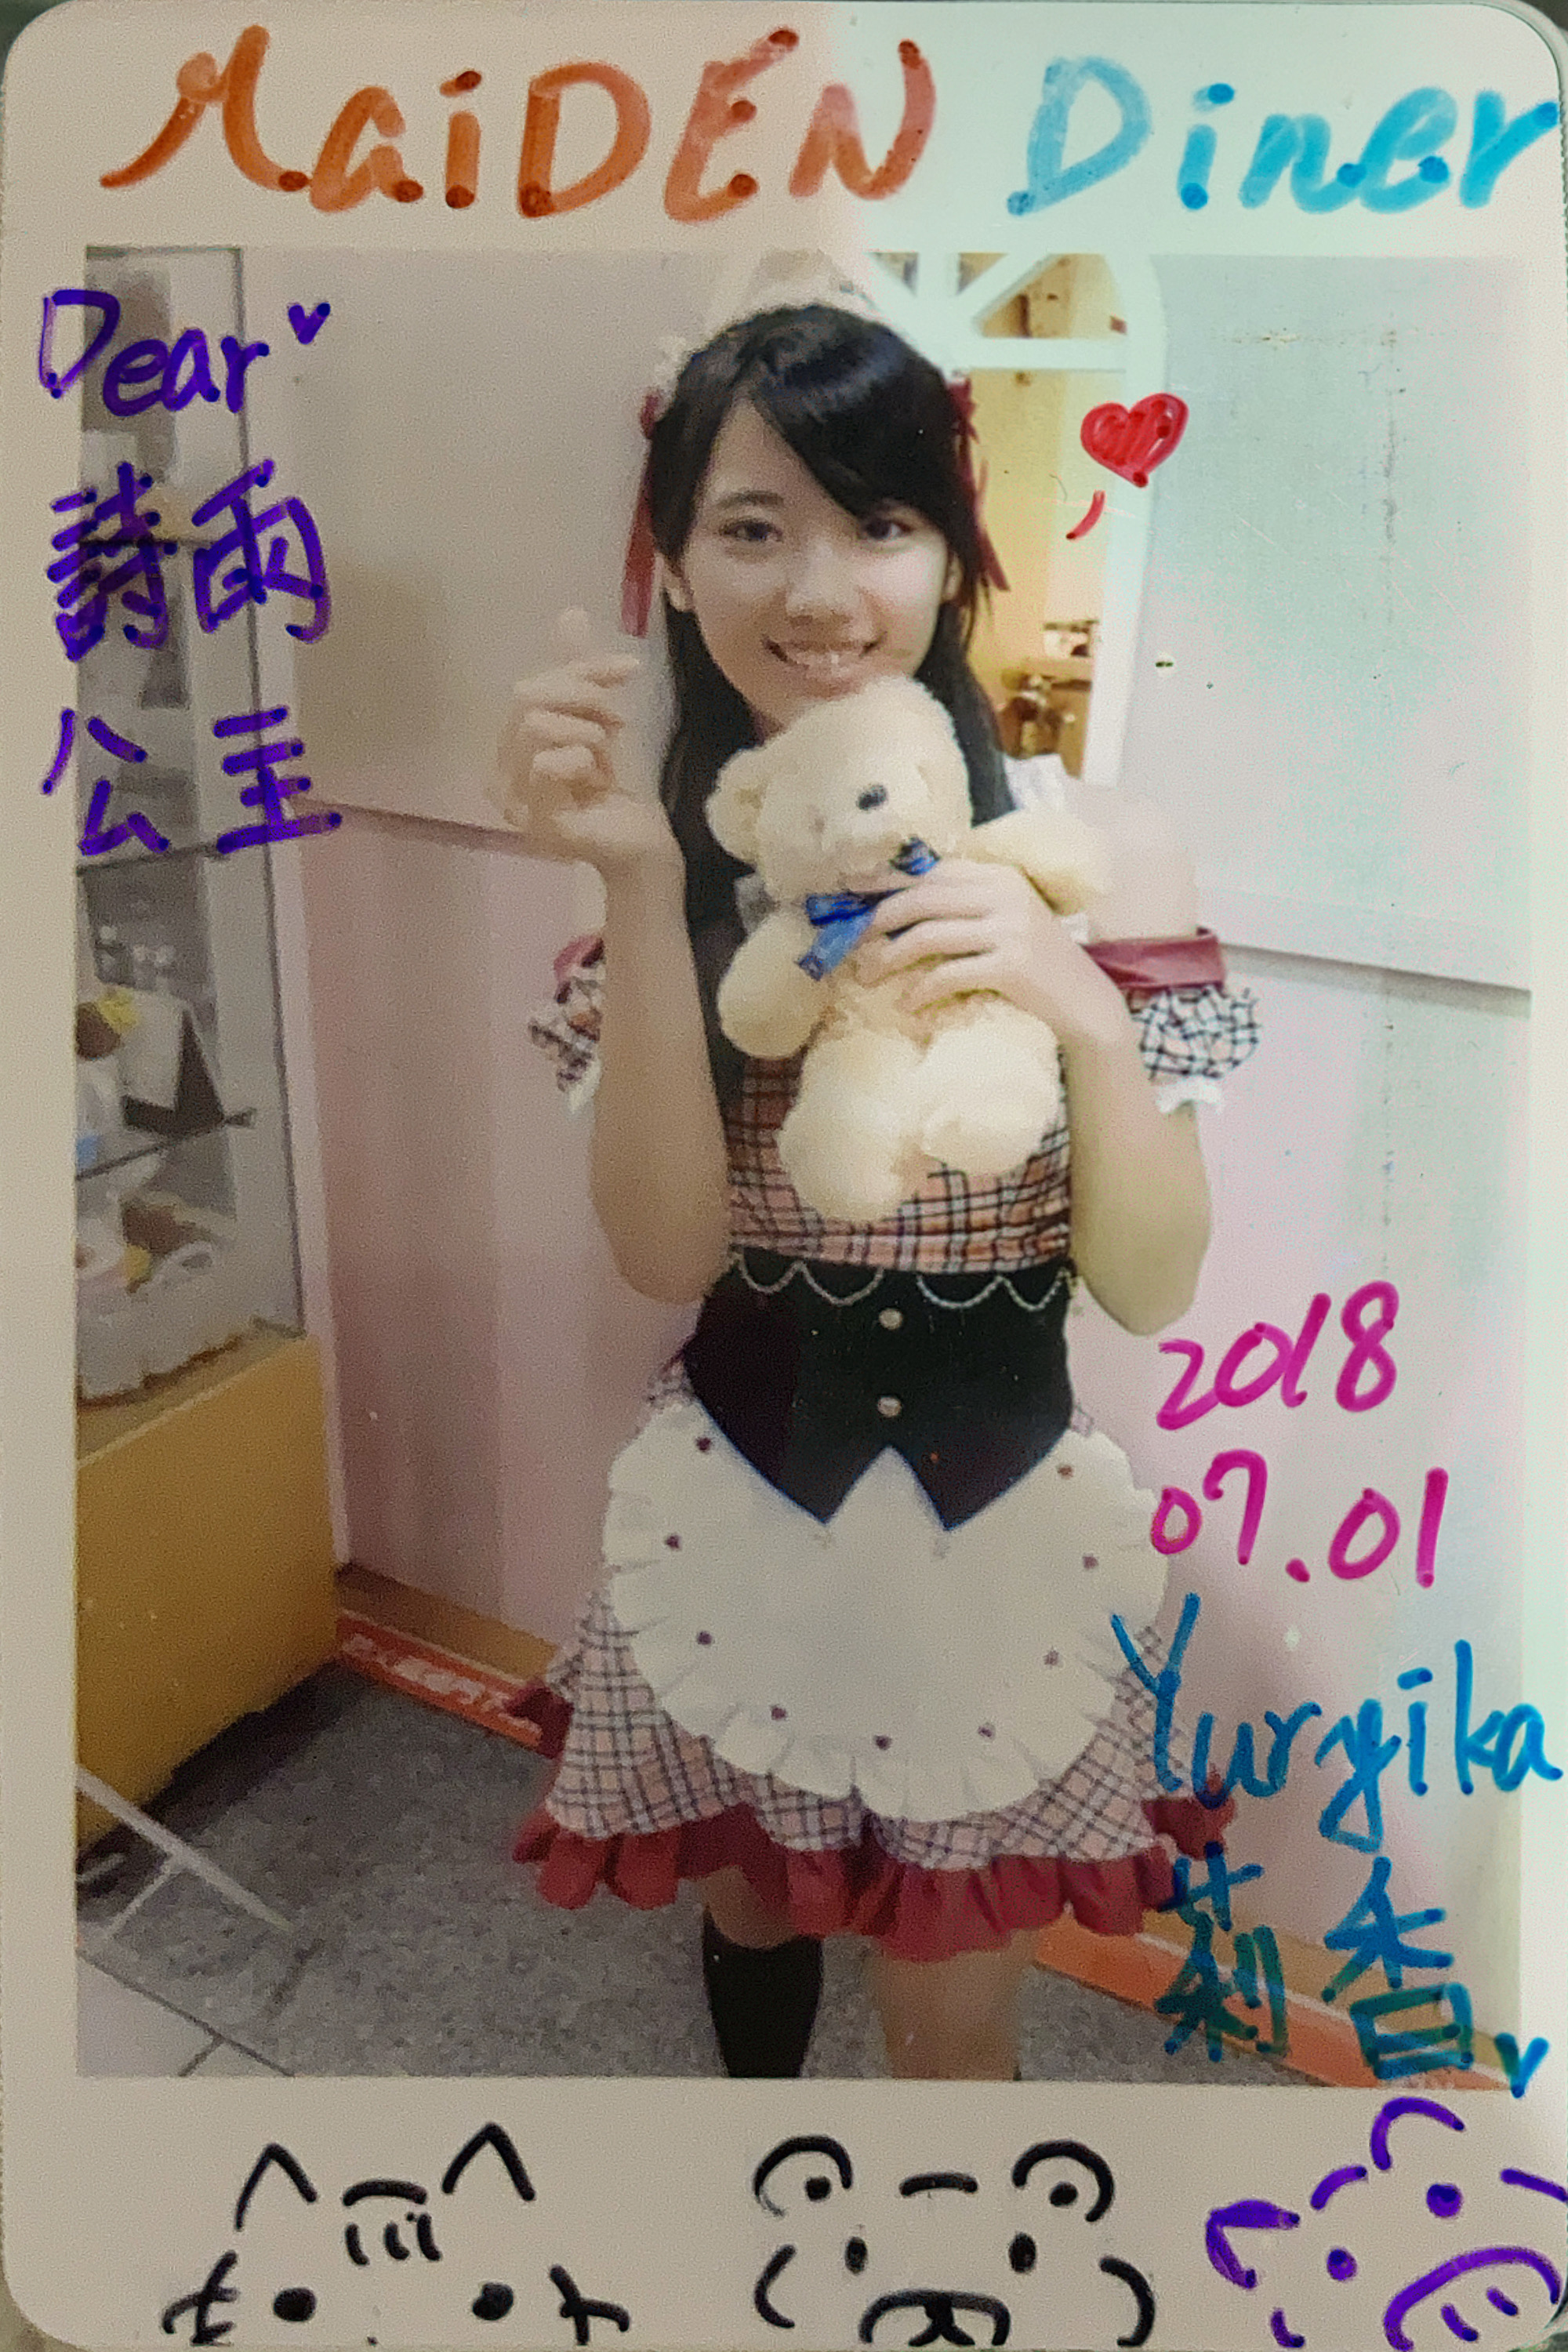 MaiDEN Diner
Dear
詩雨
公主
2018
07.01
Yuryika
莉香